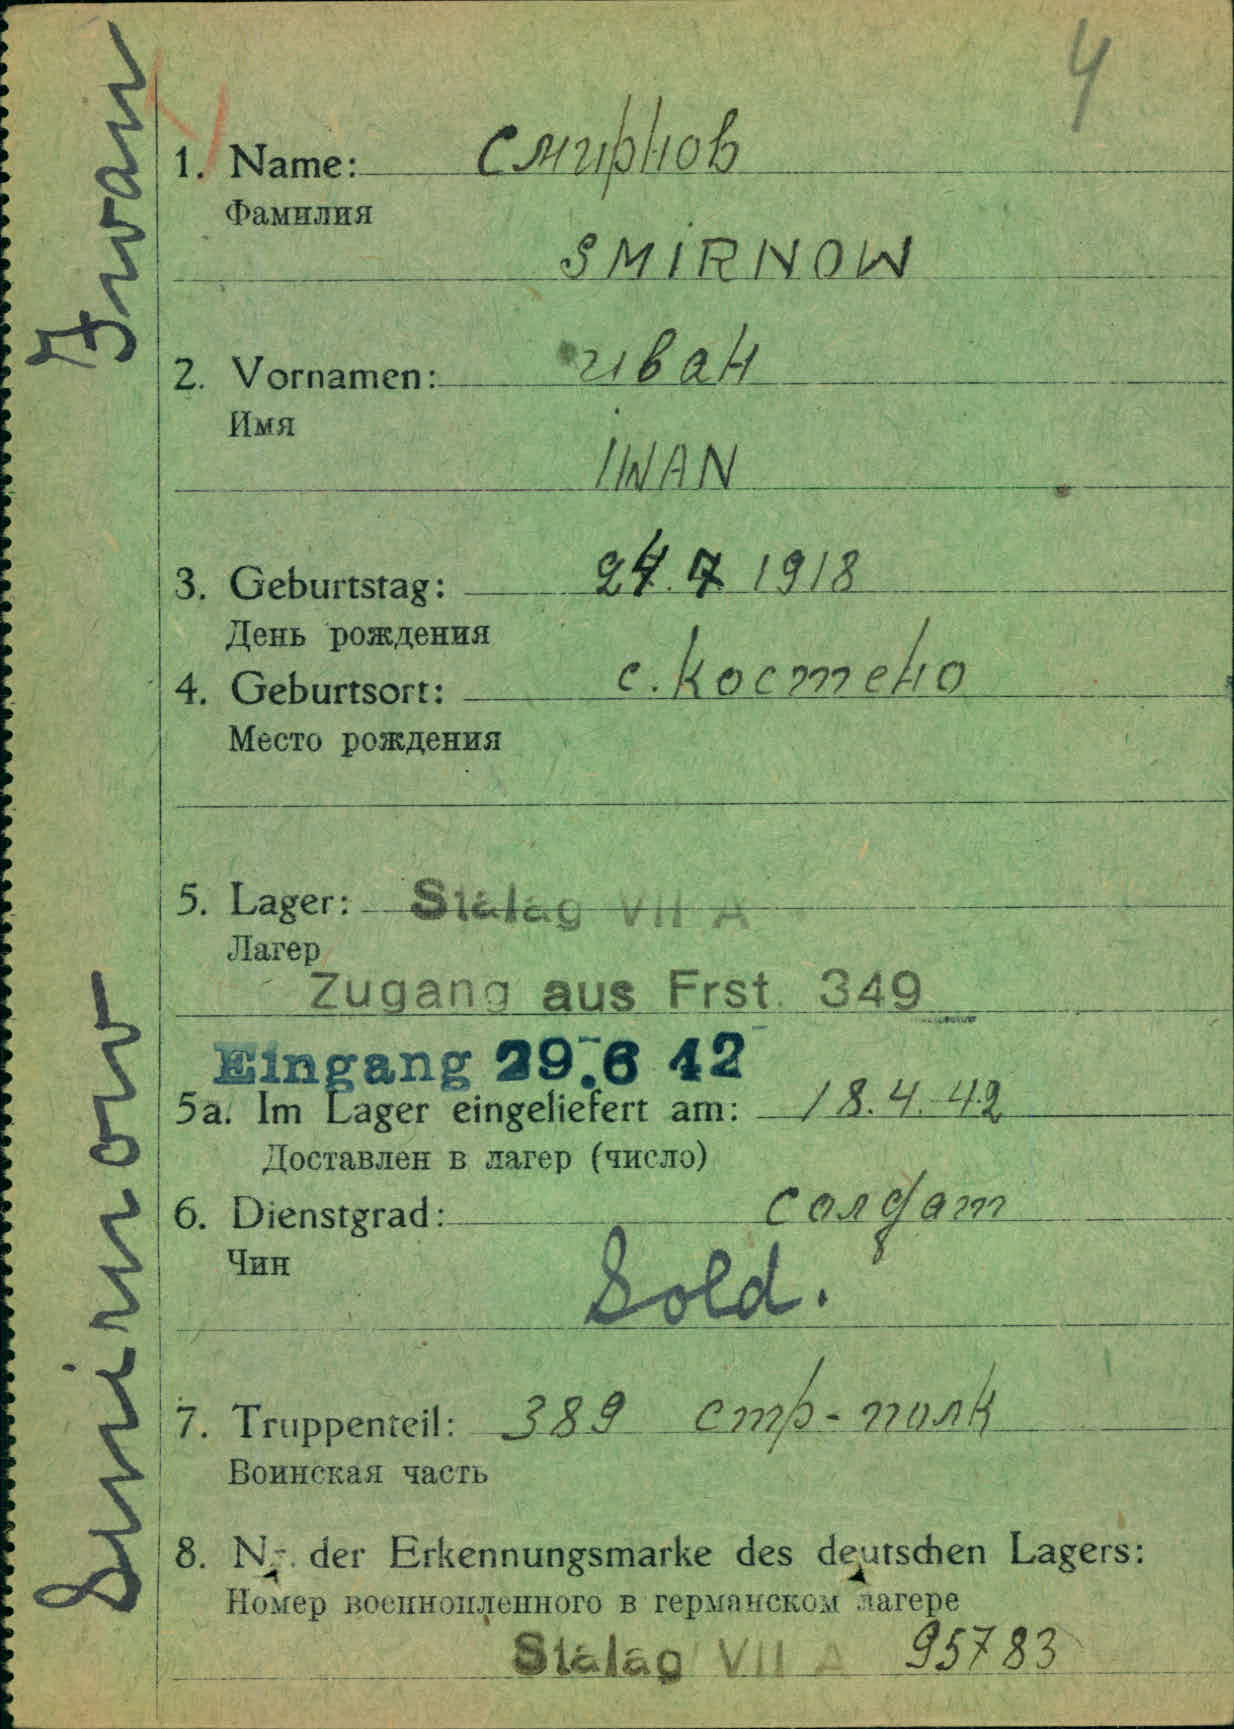 4
Smirnow Iwan
1. Name: Смирнов
Фамилия
SMIRNOW
2. Vornamen: иван
Имя
IWAN
3. Geburtstag: 24.7 1918
День рождения
4. Geburtsort: с. Костено
Место рождения
5. Lager: Stalag VII A
Лагер
Zugang aus Frst. 349
Eingang 29.6 42
5a. Im Lager eingeliefert am: 18.4.42
Доставлен в лагер (число)
6. Dienstgrad: солдат
Чин
Sold.
7. Truppenteil: 389 стр-полк
Воинская часть
8. Nr. der Erkennungsmarke des deutschen Lagers:
Номер военнопленного в германском лагере
Stalag VII A 95783